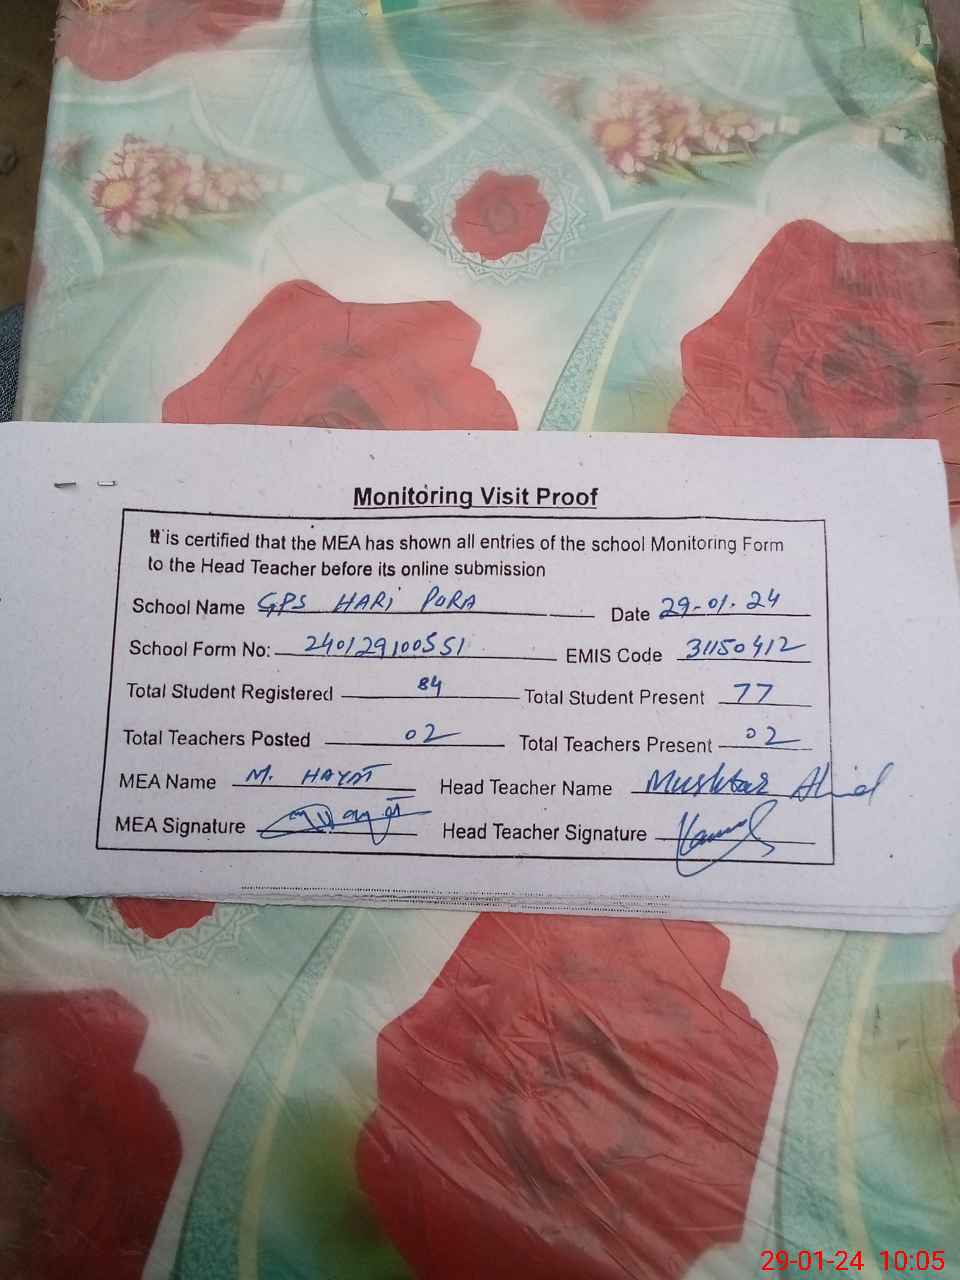 Monitoring Visit Proof
It is certified that the MEA has shown all entries of the school Monitoring Form
to the Head Teacher before its online submission
School Name GPS HARi PORA Date 29-01-24
School Form No: 240129100551 EMIS Code 31150412
Total Student Registered 84 Total Student Present 77
Total Teachers Posted 02 Total Teachers Present 02
MEA Name M. HAYAT Head Teacher Name Mushtar Ahmed
MEA Signature Head Teacher Signature
29-01-24 10:05